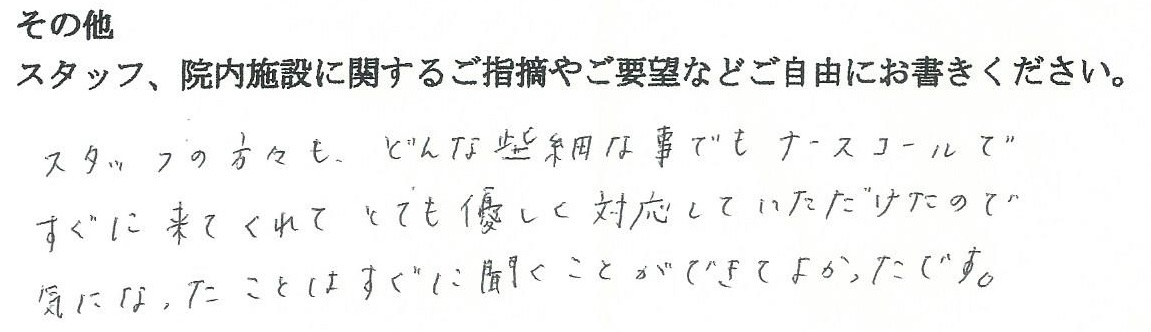 その他
スタッフ、院内施設に関するご指摘やご要望などご自由にお書きください。
スタッフの方々も、どんな些細な事でもナースコールで
すぐに来てくれてとても優しく対応していただけたので
気になったことはすぐに聞くことができてよかったです。